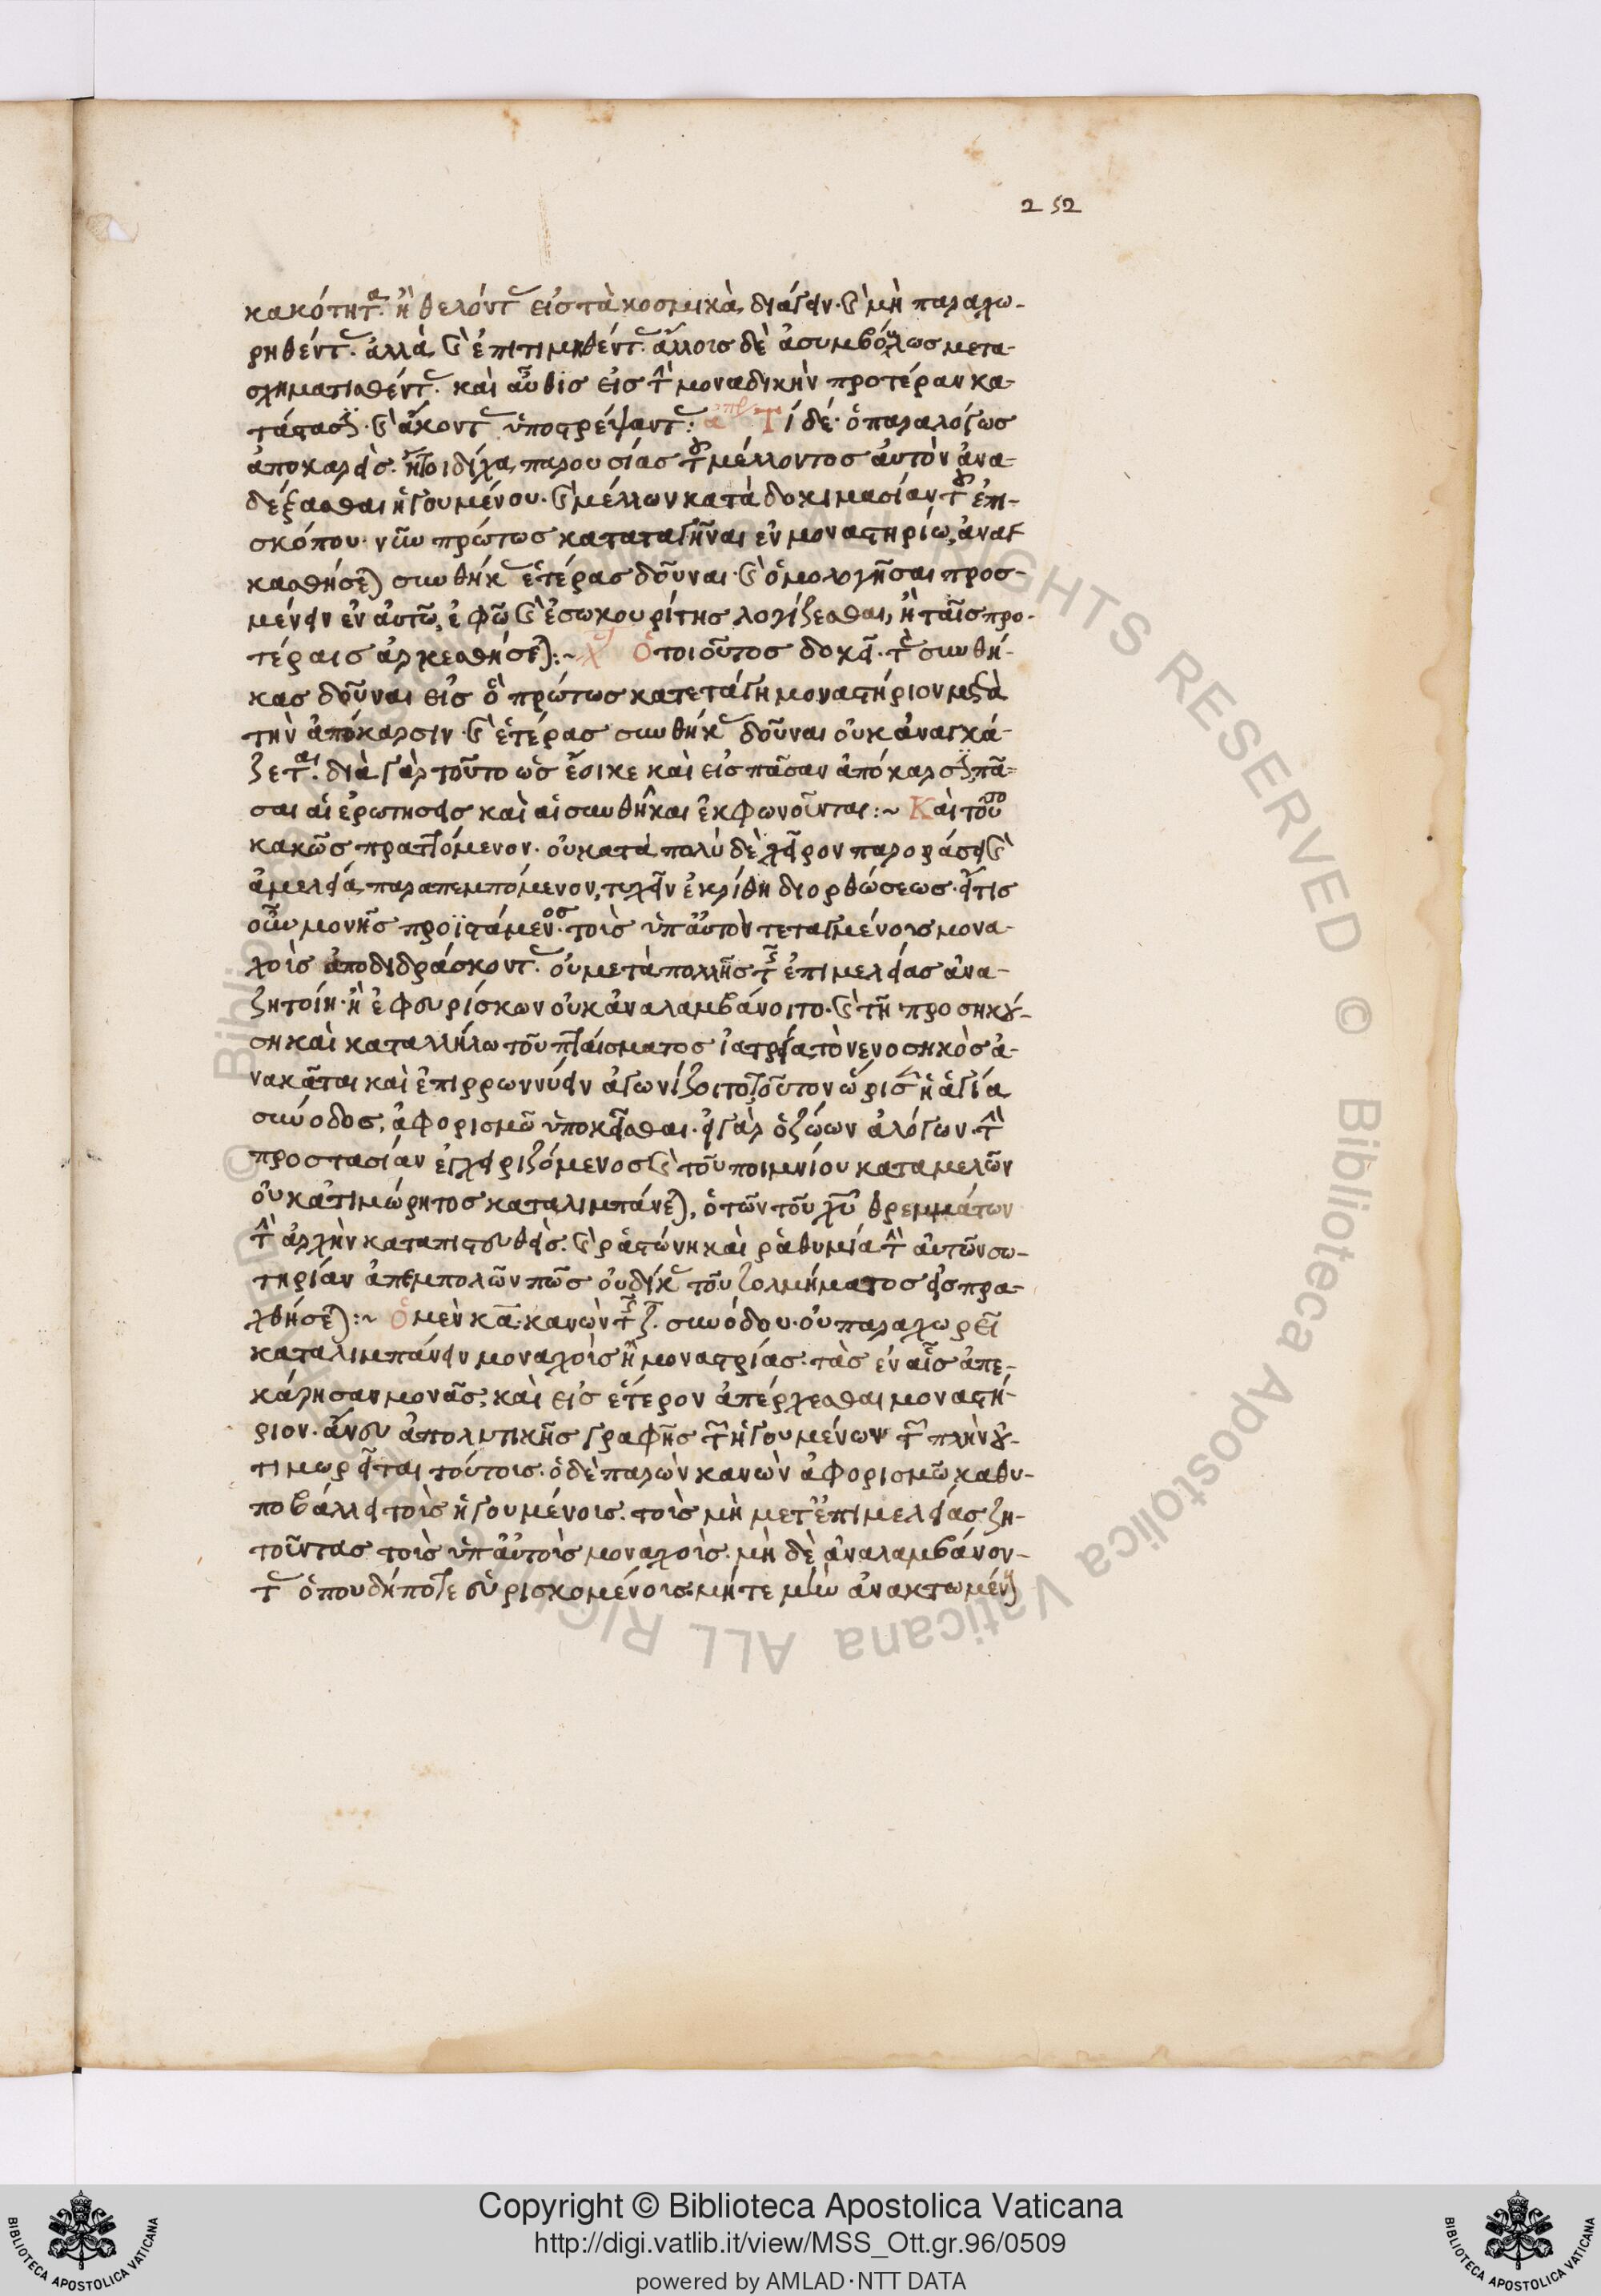 252
κακότητα. ἢ θελόντ εἰς τὰ κοσμικὰ διάγειν. καὶ μὴ παραχω-
ρηθέντ. ἀλλὰ καὶ ἐπιτιμηθέντ. ἄλλοις δὲ ἀσυμβόλως μετα-
σχηματισθέντ. καὶ αὖθις εἰς τὴν μοναδικὴν προτέραν κα-
τάστασιν. καὶ ἄκοντ ὑποστρέψαντ: Τί δέ. ὁ παραλόγως
ἀποκαρείς. ἤτοι δίχα παρουσίας τοῦ μέλλοντος αὐτὸν ἀνα-
δέξασθαι ἡγουμένου. καὶ μέλλων κατὰ δοκιμασίαν τοῦ ἐπι-
σκόπου. νῦν πρώτως καταταγῆναι ἐν μοναστηρίω, ἀναγ
κασθήσεται συνθήκας ἑτέρας δοῦναι. καὶ ὁμολογῆσαι προσ-
μένειν ἐν αὐτῶ, ἐφ ῶ καὶ ἐσωκουρίτης λογίζεσθαι, ἢ ταῖς προ-
τέραις ἀρκεσθήσεται:~ Ὁ τοιοῦτος δοκεῖ. τὰς συνθή-
κας δοῦναι εἰς ὃ πρώτως κατετάγη μοναστήριον μετὰ
τὴν ἀπόκαρσιν. καὶ ἑτέρας συνθήκας δοῦναι οὐκ ἀναγκά-
ζεται. διὰ γὰρ τοῦτο ὡς ἔοικε καὶ εἰς πᾶσαν ἀπόκαρσιν πᾶ-
σαι αἱ ἐρωτησεις καὶ αἱ συνθῆκαι ἐκφωνοῦνται:~ Καὶ τοῦτο
κακῶς πραττόμενον. οὐ κατὰ πολὺ δὲ χεῖρον παροράσει καὶ
ἀμελεία παραπεμπόμενον, τυχεῖν ἐκρίθη διορθώσεως. εἴτις
οὖν μονῆς προϊστάμενος. τοὺς ὑπ αὐτὸν τεταγμένους μονα-
χοὺς ἀποδιδράσκοντας. οὐ μετὰ πολλῆς τῆς ἐπιμελείας ἀνα-
ζητοίη. ἢ ἐφευρίσκων οὐκ ἀναλαμβάνοιτο. καὶ τῆ προσηκού-
ση καὶ καταλλήλω τοῦ πταίσματος ἰατρεία, τὸ νενοσηκὸς ἀ-
νακᾶται καὶ ἐπιρρωννύειν ἀγωνίζοιτο, τοῦτον ὥρισεν ἡ ἁγία
σύνοδος, ἀφορισμῶ ὑποκεῖσθαι. εἰ γὰρ ὁ ζώων ἀλόγων. τὴν
προστασίαν ἐγχειριζόμενος καὶ τοῦ ποιμνίου καταμελῶν
οὐκ ἀτιμώρητος καταλιμπάνεται, ὁ τῶν τοῦ χυ θρεμμάτων
τὴν ἀρχὴν καταπιστευθείς. καὶ ραστώνη καὶ ραθυμία τὴν αὐτῶν σω-
τηρίαν ἀπεμπολῶν πῶς οὐ δίκας τοῦ τολμήματος εἰσπρα-
χθήσεται:~ Ὁ μὲν κα. κανὼν τῆς ζ. συνόδου. οὐ παραχωρεῖ
καταλιμπάνειν μοναχοὺς ἢ μοναστρίας. τὰς ἐν αἷς ἀπε-
κάρησαν μονὰς, καὶ εἰς ἕτερον ἀπέρχεσθαι μοναστή-
ριον. ἄνευ ἀπολυτικῆς γραφῆς τῶν ἡγουμένων τῶν πλὴν οὐ
τιμωρεῖται τούτους. ὁ δὲ παρὼν κανὼν ἀφορισμῶ καθυ-
ποβάλλει τοὺς ἡγουμένους. τοὺς μὴ μετ ἐπιμελείας ζη-
τοῦντας τοὺς ὑπ αὐτοὺς μοναχοὺς. μὴ δὲ ἀναλαμβάνον-
τας ὁπουδήποτε εὑρισκομένους. μήτε μὴν ἀνακτωμένους
Copyright © Biblioteca Apostolica Vaticana
http://digi.vatlib.it/view/MSS_Ott.gr.96/0509
powered by AMLAD·NTT DATA